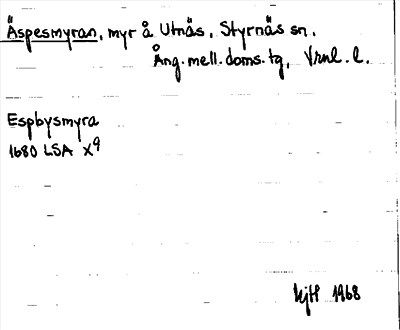 Äspesmyran, myr å Utnäs, Styrnäs sn.
Ång. mell. doms. tg, Vrnl. l.
Espbysmyra
1680 LSA X9
HjH 1968